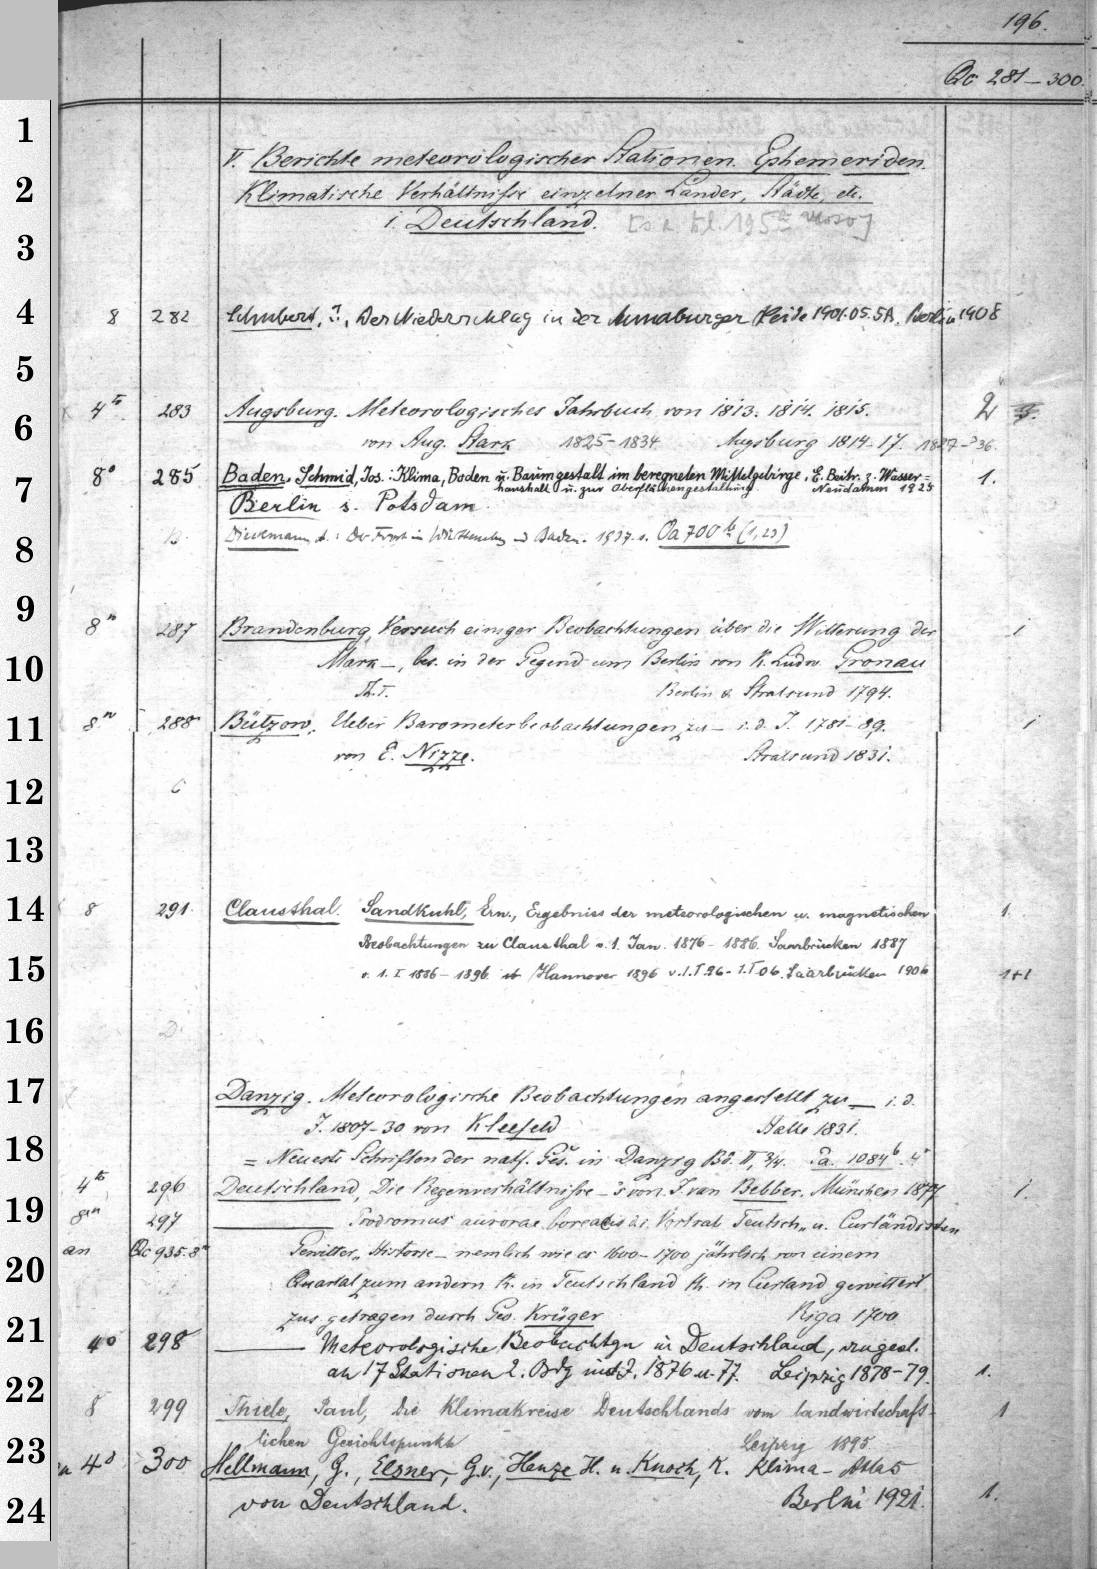 196.
Qc 281–300
1
V. Berichte meteorologischer Stationen. Ephemeriden.
2
Klimatische Verhältnisse einzelner Länder, Städte, etc.
i. Deutschland. [s a Bl. 195 verso]
3
4
8 282 Schubert, J., Der Niederschlag in der Annaburger Heide 1901.05. SA. Berlin 1908
5
4to 283 Augsburg. Meteorologisches Jahrbuch von 1813. 1814. 1815. 2
6
von Aug. Stark 1825–1834 Augsburg 1814–17. 1827–36.
7
8° 285 Baden. Schmid, Jos.: Klima, Boden u. Baumgestalt im beregneten Mittelgebirge. E. Beitr. z. Wasser= 1.
haushalt u. zur Oberflächengestaltung Neudamm 1925
Berlin s. Potsdam.
8
B. Dieckmann, A.: Der Forst in Württemberg und Baden. 1937. s. Oa 700 b (1,23)
9
8vo 287 Brandenburg, Versuch einiger Beobachtungen über die Witterung der 1
10
Mark –, bes. in der Gegend um Berlin von K. Ludw. Gronau
Th. I. Berlin & Stralsund 1794.
11
8vo 288 Bützow, Ueber Barometerbeobachtungen zu – i. d. J. 1781–89. 1
von E. Nizze. Stralsund 1831.
12
C
13
14
8 291 Clausthal. Sandkuhl, Erw., Ergebniss der meteorologischen u. magnetischen 1.
Beobachtungen zu Clausthal v. 1. Jan. 1876–1886. Saarbrücken 1887
15
v. 1. I 1886–1896. ib Hannover 1896 v. 1. I. 96–1. I 06. Saarbrücken 1906 1+1
16
D
17
Danzig. Meteorologische Beobachtungen angestellt zu – i. d.
J. 1807–30 von Kleefeld Halle 1831.
18
= Neueste Schriften der natf. Ges. in Danzig Bd. II, 3/4. Pa. 1084 b. 4°
4to 296 Deutschland, Die Regenverhältnisse –'s von J. van Bebber. München 1877 1.
19
8vo 297 ——— Prodromus aurorae borealis d. i. Vortrab Teutsch„ u. Curländischen
an Qc 935. 8° Gewitter„ Historie – nemlich wie es 1600–1700 jährlich von einem
20
Quartal zum andern K. in Teutschland th. in Curland gewittert
zus. getragen durch Geo. Krüger Riga 1700
21
4° 298 ——— Meteorologische Beobachtgn in Deutschland, angest.
an 17 Stationen 2. Ordg inst. J. 1876 u. 77. Leipzig 1878–79. 1.
22
8 299 Thiele, Paul, Die Klimakreise Deutschlands vom landwirtschaft- 1
lichen Gesichtspunkte Leipzig 1895
23
4° 300 Hellmann, G., Elsner, G. v., Henze H. u. Knoch, K. Klima-Atlas
24
von Deutschland. Berlin 1921. 1.